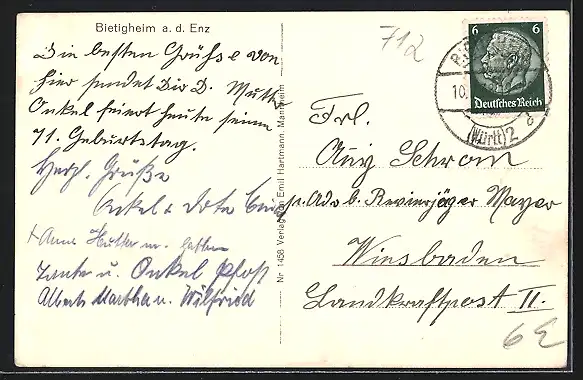 Bietigheim a. d. Enz
Die besten Grüße von
hier sendet Dir D. Mutter
Onkel feiert heute seinen
71. Geburtstag.
Herzl. Grüße
Onkel & Dote
Anna
Tante u. Onkel
Albert Martha u. Wilfried
Nr. 1456 Verlag von Emil Hartmann, Mannheim
712
6 6
Deutsches Reich
10.
(Württ) 2
Frl.
Schrom
Adr. b. Revierjäger Mayer
Wiesbaden
Landkraftpost II.
6E